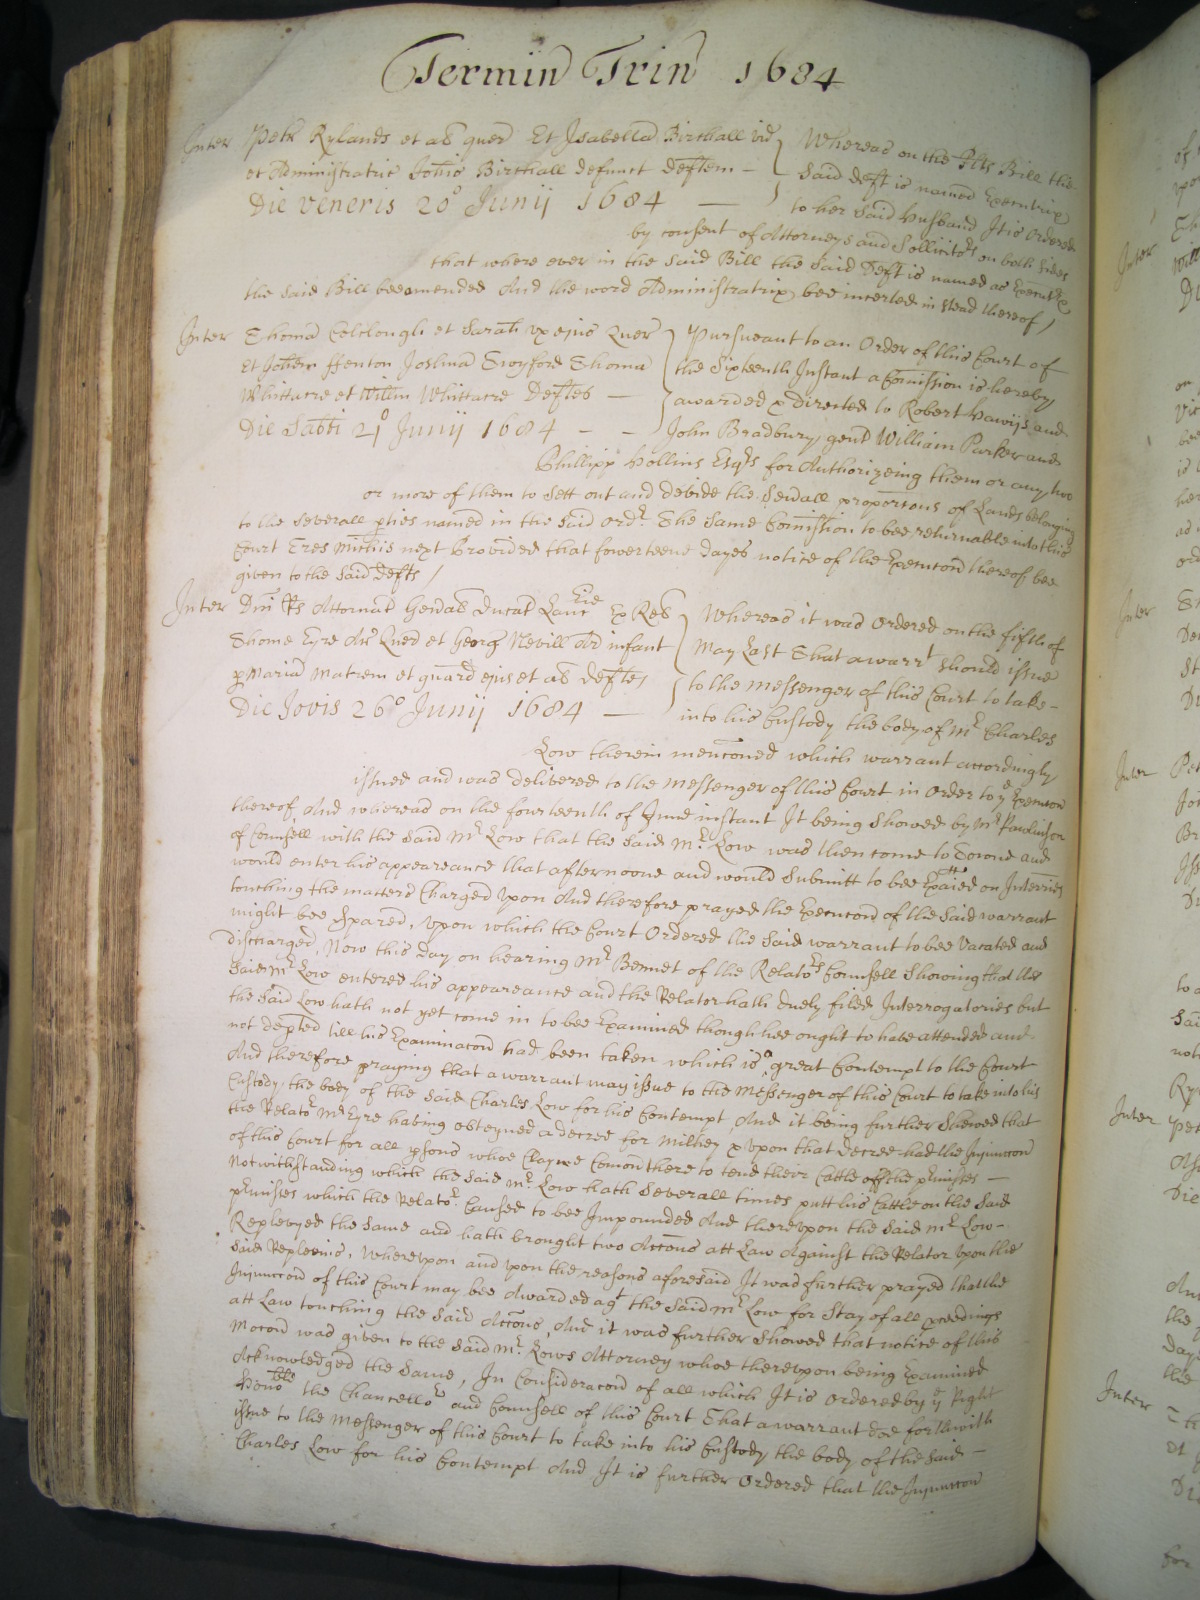 Termin Trin 1684
Inter Petr Rylands et als quer Et Isabella Birchall vid
et Administratric Johis Birchall defunct deftem –
Die Veneris 20° Junij 1684 —
Whereas on the Plts Bill the
said deft is named Executrix
to her said Husband It is Ordered
by consent of Attorneys and Sollicitrs on both sides
that where ever in the said Bill the said Deft is named as Executrx
the said Bill bee amended And the word Administratrix bee incerted in stead thereof /
Inter Thoma Coltlough et Sarah ux ejus Quer
Et Johem ffenton Joshua Twyford Thoma
Whittacre et Willm Whittacre Deftes —
Die Sabti 21° Junij 1684 - -
Pursueant to an Order of this Court of
the Sixteenth Instant a Comission is hereby
awarded & directed to Robert Hawijs and
John Bradbury gent William Parker and
Phillipp Hollins Esqrs for Authorizeing them or any two
or more of them to sett out and devide the sevall proportons of Lands belonging
to the severall pties named in the said ordr. The same Comission to bee returnable into this
Court Tres Michis next Provided that fowerteene dayes notice of the Execucon thereof bee
given to the said Defts /
Inter Dni Rs Attornat Gen ducat Lanc Ex Rel
Thome Eyre Ar Quer et Georg Nevill Ar infant
p Maria Matrem et guard ejus et als deftes
Die Jovis 26° Junij 1684 —
Whereas it was Ordered on the fifth of
May Last That a warrt should issue
to the Messenger of this Court to take –
into his Custody the body of Mr Charles
Low therein menconed which warrant accordingly
issued and was delivered to the Messenger of this Court in order to ye Execucon
thereof And whereas on the fourteenth of June instant It being Showed by Mr Rawlinson
of Counsell with the said Mr Low that the said Mr. Low was then come to Towne and
would enter his appeareance that afternoone and would Submitt to bee Exaied on Interries
touching the matters Charged upon And therefore prayed the Execucon of the said warrant
might bee spared, Upon which the Court Ordered the said warrant to bee vacated and
discharged, Now this day on hearing Mr Bennet of the Relators Counsell Showing that the
said Mr Low entered his appeareance and the Relator hath duely filed Interrogatories but
the said Low hath not yet come in to bee Examined though hee ought to have attended and
not depted till his Examinacon had been taken which is a great Contempt to the Court
And therefore praying that a warrant may issue to the Messenger of this Court to take into his
Custody the body of the said Charles Low for his Contempt And it being further Shewed that
the Relator Mr Eyre haveing obteyned a decree for Milhey & upon that decree had the Injunccon
of this Court for all psons whoe Clayme Comon there to tend their Cattle off the pmisses —
Notwithstanding which the said Mr. Low hath Severall times putt his Cattle on the said
pmisses which the Relator Caused to bee Impounded And thereupon the said Mr Low –
Replevyed the same and hath brought two Accons att Law Against the Relator upon the
said Replevins, Whereupon and upon the reasons aforesaid It was further prayed that the
Injunccon of this Court may bee Awarded agt the said Mr Low for Stay of all pceedings
att Law touching the said Accons, And it was further Showed that notice of this
Mocon was given to the said Mr. Lows Attorney whoe thereupon being Examined
Acknowledged the same, In Consideracon of all which It is Ordered by ye Right
Honoble the Chancellor and Counsell of this Court That a warrant doe forthwith
issue to the Messenger of this Court to take into his Custody the body of the said —
Charles Low for his Contempt And It is further Ordered that the Injunccon